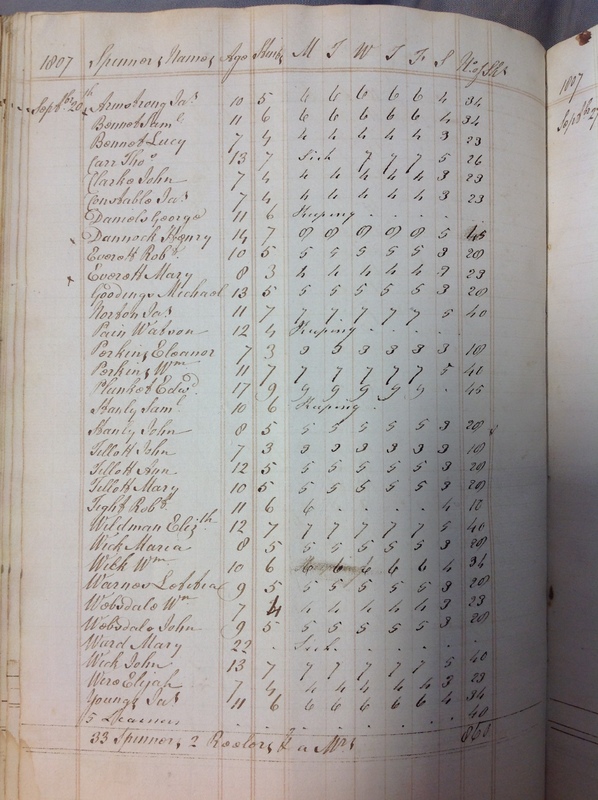 1807 Spinners Names Age Stint M T W T F S No. of Sks
Septbr. 20th Armstrong Jas. 10 5 6 6 6 6 6 4 34
Bennet Saml. 11 6 6 6 6 6 6 4 34
Bennet Lucy 7 4 4 4 4 4 4 3 23
Carr Thos. 13 7 Sick 7 7 7 5 26
Clarke John 7 4 4 4 4 4 4 3 23
Constable Jas. 7 4 4 4 4 4 4 3 23
Daniels George 11 6 Keeping . . . .
Dannock Henry 14 7 8 8 8 8 8 5 45
Everett Robt. 10 5 5 5 5 5 5 3 28
Everett Mary 8 3 4 4 4 4 4 3 23
Goodings Michael 13 5 5 5 5 5 5 3 28
Norton Jas. 11 7 7 7 7 7 7 5 40
Pain Watson 12 4 Keeping . . . .
Perkins Eleanor 7 3 3 3 3 3 3 3 18
Perkins Wm. 11 7 7 7 7 7 7 5 40
Plunket Edwd. 17 9 9 9 9 9 9 . 45
Stanly Saml. 10 6 Keeping .
Stanly John 8 5 5 5 5 5 5 3 28
Tillott John 7 3 3 3 3 3 3 3 18
Tillott Ann 12 5 5 5 5 5 5 3 28
Tillott Mary 10 5 5 5 5 5 5 3 28
Tight Robt. 11 6 6 . . . . 4 10
Wildman Elizth. 12 7 7 7 7 7 7 5 40
Wick Maria 8 5 5 5 5 5 5 3 28
Wick Wm. 10 6 6 6 6 6 4 34
Warnes Lætitia 9 5 5 5 5 5 5 3 28
Websdale Wm. 7 4 4 4 4 4 4 3 23
Websdale John 9 5 5 5 5 5 5 3 28
Ward Mary 22 . Sick . . . . .
Wick John 13 7 7 7 7 7 7 5 40
Were Elijah 7 4 4 4 4 4 4 3 23
Youngs Jas. 11 6 6 6 6 6 6 4 34
5 Learners . . . . . . . . 40
33 Spinners, 2 Reelers, & a Mrs.
1807
Septbr. 27